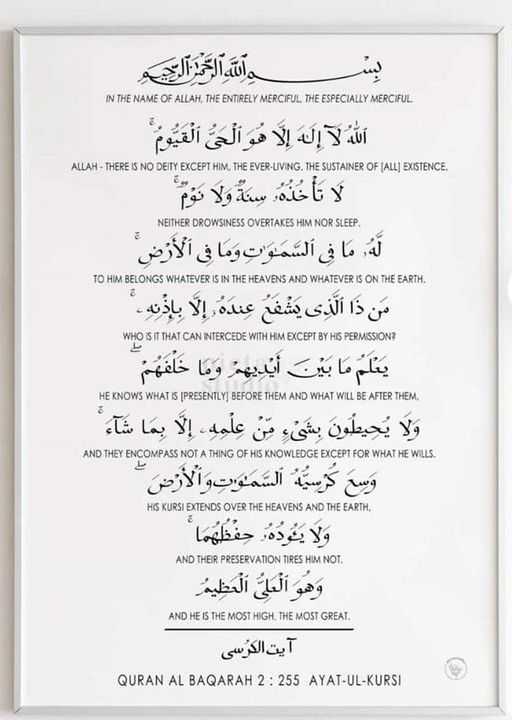 بِسْمِ ٱللَّهِ ٱلرَّحْمَٰنِ ٱلرَّحِيمِ
IN THE NAME OF ALLAH, THE ENTIRELY MERCIFUL, THE ESPECIALLY MERCIFUL.
ٱللَّهُ لَآ إِلَٰهَ إِلَّا هُوَ ٱلْحَىُّ ٱلْقَيُّومُ ۚ
ALLAH - THERE IS NO DEITY EXCEPT HIM, THE EVER-LIVING, THE SUSTAINER OF [ALL] EXISTENCE.
لَا تَأْخُذُهُۥ سِنَةٌ وَلَا نَوْمٌ ۚ
NEITHER DROWSINESS OVERTAKES HIM NOR SLEEP.
لَّهُۥ مَا فِى ٱلسَّمَٰوَٰتِ وَمَا فِى ٱلْأَرْضِ ۗ
TO HIM BELONGS WHATEVER IS IN THE HEAVENS AND WHATEVER IS ON THE EARTH.
مَن ذَا ٱلَّذِى يَشْفَعُ عِندَهُۥٓ إِلَّا بِإِذْنِهِۦ ۚ
WHO IS IT THAT CAN INTERCEDE WITH HIM EXCEPT BY HIS PERMISSION?
يَعْلَمُ مَا بَيْنَ أَيْدِيهِمْ وَمَا خَلْفَهُمْ ۖ
nieta
studio
HE KNOWS WHAT IS [PRESENTLY] BEFORE THEM AND WHAT WILL BE AFTER THEM,
وَلَا يُحِيطُونَ بِشَىْءٍ مِّنْ عِلْمِهِۦٓ إِلَّا بِمَا شَآءَ ۚ
AND THEY ENCOMPASS NOT A THING OF HIS KNOWLEDGE EXCEPT FOR WHAT HE WILLS.
وَسِعَ كُرْسِيُّهُ ٱلسَّمَٰوَٰتِ وَٱلْأَرْضَ ۖ
HIS KURSI EXTENDS OVER THE HEAVENS AND THE EARTH,
وَلَا يَـُٔودُهُۥ حِفْظُهُمَا ۚ
AND THEIR PRESERVATION TIRES HIM NOT.
وَهُوَ ٱلْعَلِىُّ ٱلْعَظِيمُ
AND HE IS THE MOST HIGH, THE MOST GREAT.
آيت الكرسى
QURAN AL BAQARAH 2 : 255 AYAT-UL-KURSI